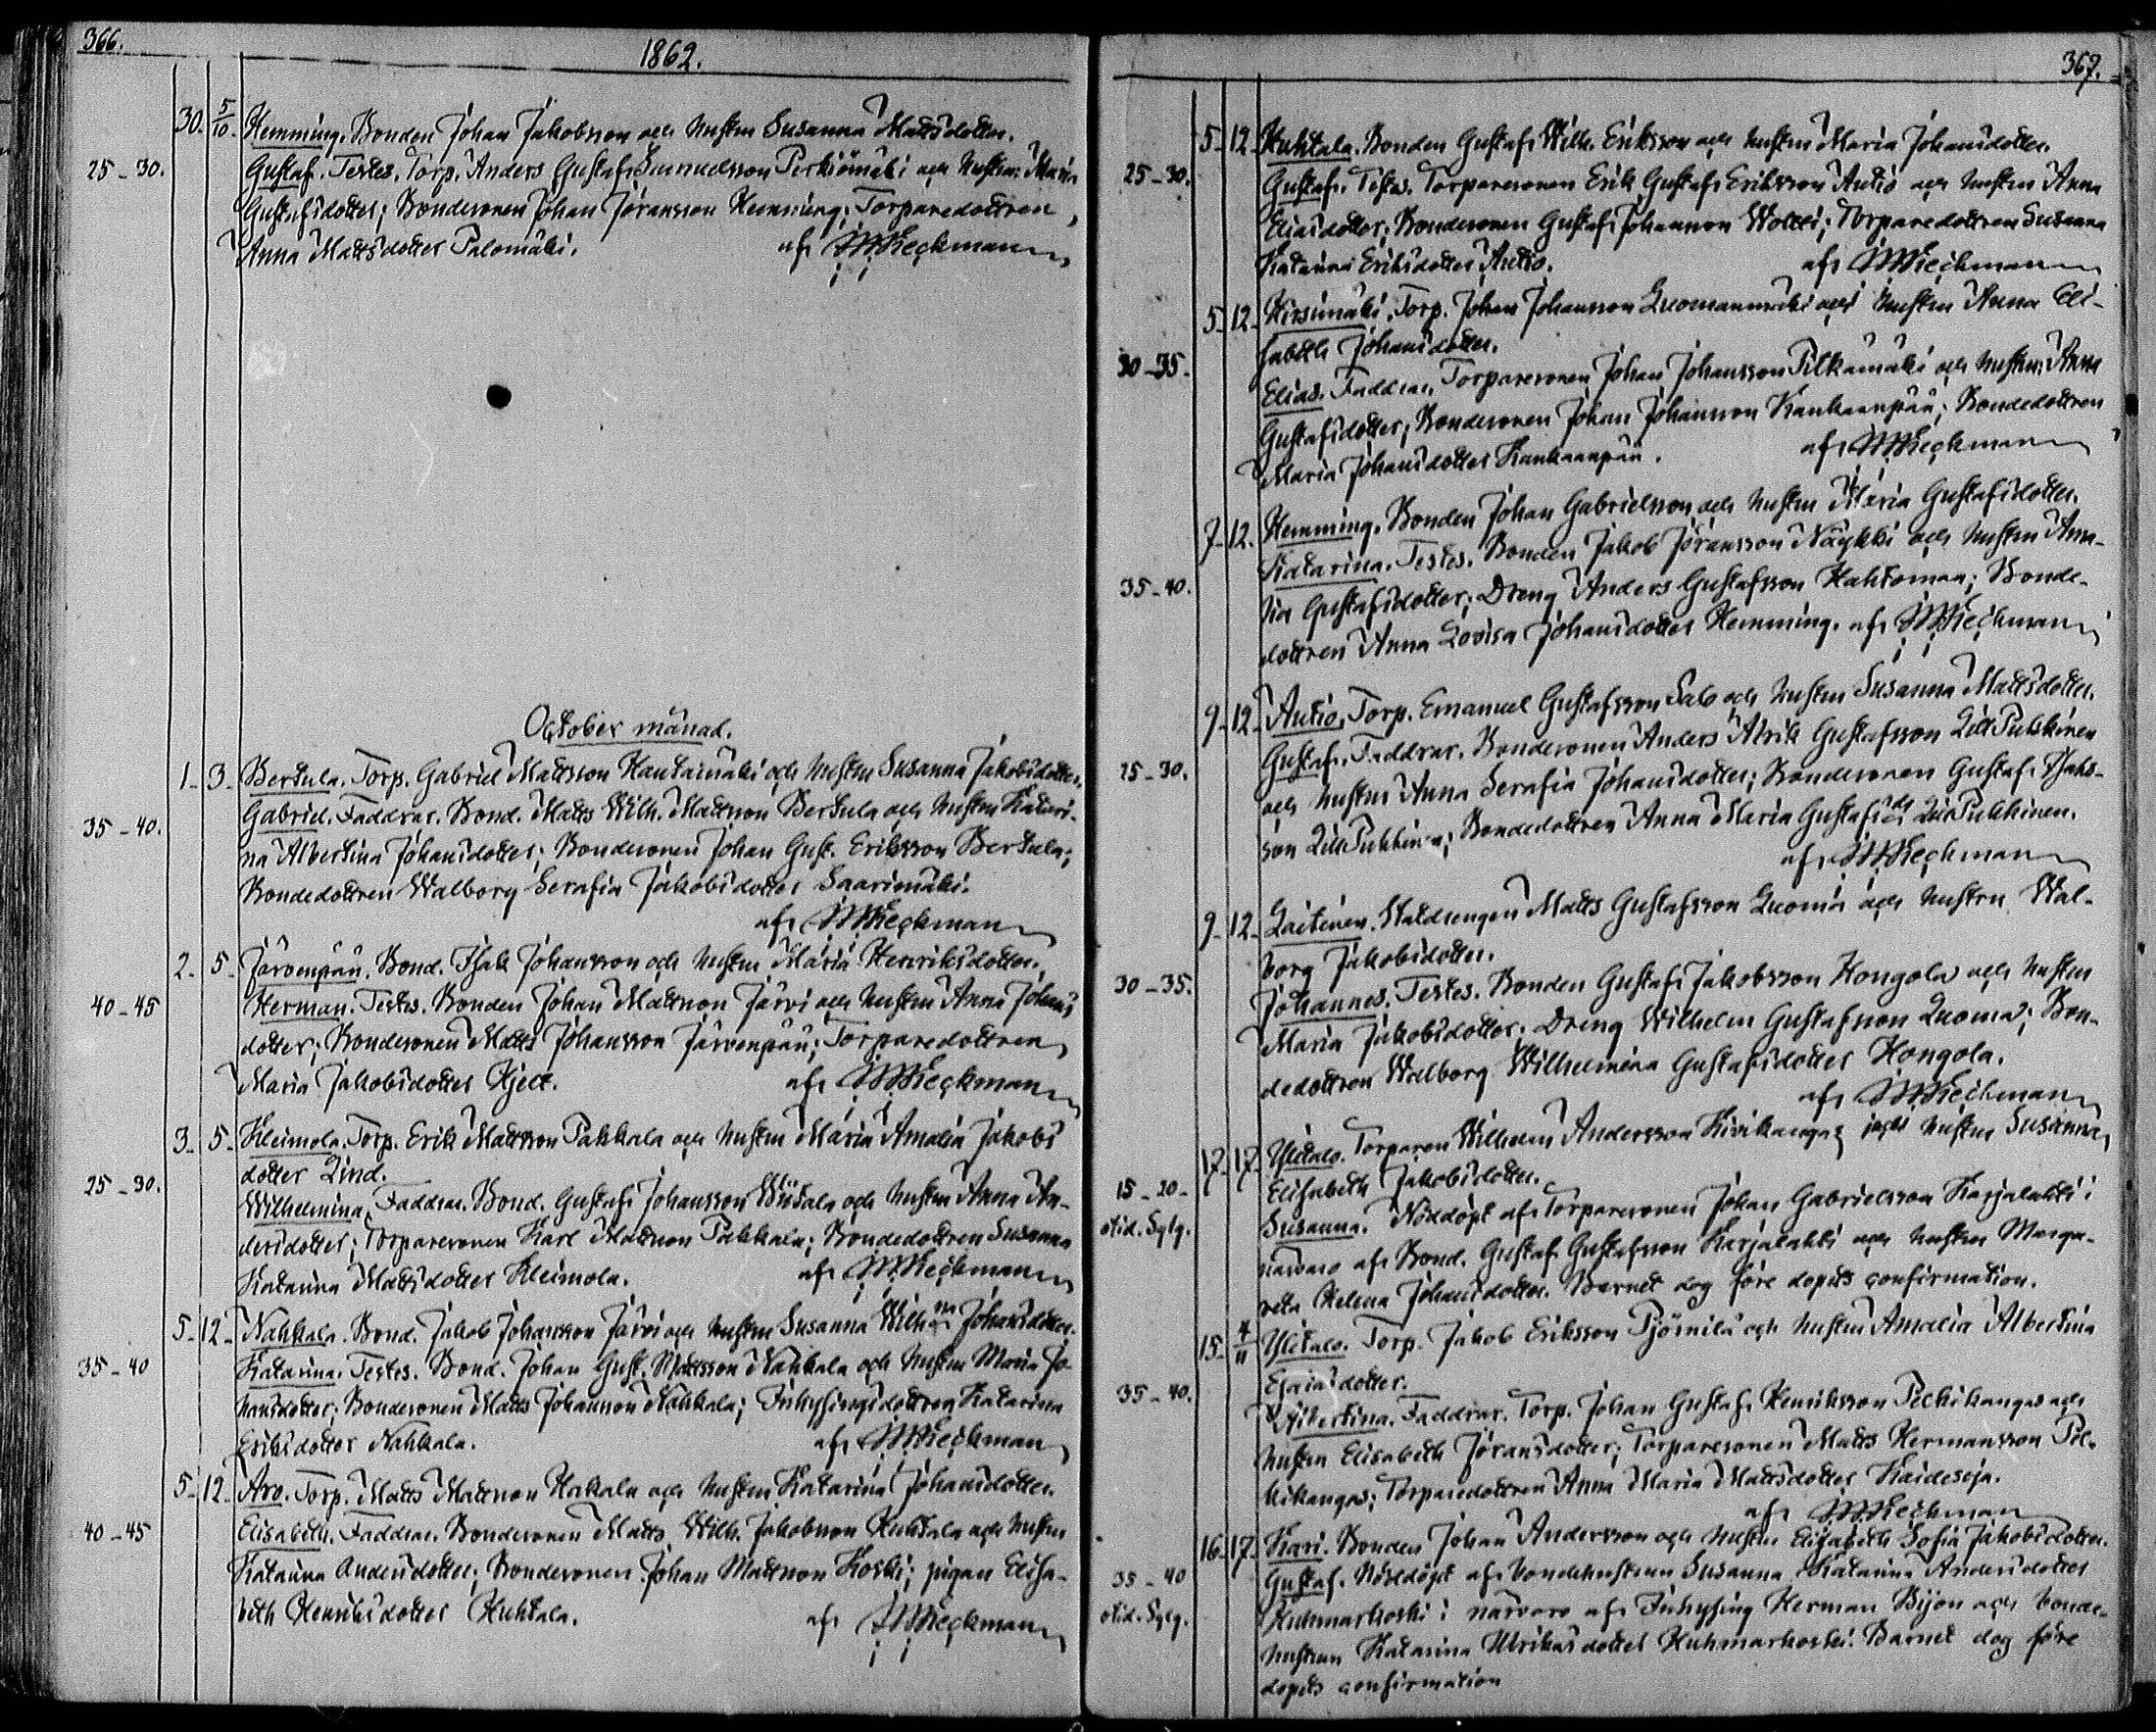 366.
1862.
30. 5/10. Hemming. Bonden Johan Jakobsson och hustru Susanna Mattsdotter.
25-30. Gustaf. Testes. Torp. Anders Gustaf Samuelsson Perkiömäki och hustru Maria
Gustafsdotter; Bondesonen Johan Jöransson Hemming; Torparedottren
Anna Mattsdotter Palomäki. af
October månad.
1. 3. Bertula. Torp. Gabriel Mattsson Hautamäki och hustru Susanna Jakobsdotter.
35-40. Gabriel. Faddrar. Bond. Matts Wilh. Mattsson Bertula och hustru Katari-
na Albertina Johansdotter; Bondesonen Johan Gust. Eriksson Bertula;
Bondedottren Walborg Serafia Jakobsdotter Saarimäki.
af
2. 5. Järvenpää. Bond. Isak Johansson och hustru Maria Henriksdotter.
40-45 Herman. Testes. Bonden Johan Mattsson Järvi och hustru Anna Johans
dotter; Bondesonen Matts Johansson Järvenpää; Torparedottren
Maria Jakobsdotter Hjelt. af
3. 5. Kleimola. Torp. Erik Mattsson Pakkala och hustru Maria Amalia Jakobs
dotter Lind.
25-30. Wilhelmina. Faddrar. Bond. Gustaf Johansson Wiitala och hustru Anna An-
dersdotter; Torparesonen Karl Mattsson Pakkala; Bondedottren Susanna
Katarina Mattsdotter Kleimola. af
5. 12. Nahkala. Bond. Jakob Johansson Järvi och hustru Susanna Wilh:na Johansdotter.
35-40 Katarina. Testes. Bond. Johan Gust. Mattsson Nahkala och hustru Maria Jo-
hansdotter; Bondesonen Matts Johansson Nahkala; Inhysingsdottren Katarina
Eriksdotter Nahkala. af
5. 12. Aro. Torp. Matts Mattsson Hakala och hustru Katarina Johansdotter.
40-45 Elisabeth. Faddrar. Bondesonen Matts Wilh. Jakobsson Huhtala och hustru
Katarina Andersdotter; Bondesonen Johan Mattsson Koski; pigan Elisa-
beth Henriksdotter Huhtala. af
367.
5. 12. Huhtala. Bonden Gustaf Wilh. Eriksson och hustru Maria Johansdotter.
25-30. Gustaf. Testes. Torparesonen Erik Gustaf Eriksson Autio och hustru Anna
Eliasdotter; Bondesonen Gustaf Johansson Wottei; Torparedottren Susanna
Katarina Eriksdotter Autio. af
5. 12. Hirsimäki. Torp. Johan Johansson Luomanmäki och hustru Anna Eli-
sabeth Johansdotter.
30-35. Elias. Faddrar. Torparesonen Johan Johansson Pilkamäki och hustru Anna
Gustafsdotter; Bondesonen Johan Johansson Kankaanpää; Bondedottren
Maria Johansdotter Kankaanpää. af
7. 12. Hemming. Bonden Johan Gabrielsson och hustru Maria Gustafsdotter.
Katarina. Testes. Bonden Jakob Jöransson Näykki och hustru Ama-
35-40. lia Gustafsdotter; Dreng Anders Gustafsson Hahtomaa; Bonde-
dottren Anna Lovisa Johansdotter Hemming. af
9. 12. Autio. Torp. Emanuel Gustafsson Salo och hustru Susanna Mattsdotter.
25-30. Gustaf. Faddrar. Bondesonen Anders Alrik Gustafsson Lill Pukkinen
och hustru Anna Serafia Johansdotter; Bondesonen Gustaf Isaks-
son Lill Pukkinen; Bondedottren Anna Maria Gustafsdr Lill Pukkinen.
af
9. 12. Laitinen. Statdrengen Matts Gustafsson Luoma och hustru Wal-
borg Jakobsdotter.
30-35. Johannes. Testes. Bonden Gustaf Jakobsson Hongola och hustru
Maria Jakobsdotter; Dreng Wilhelm Gustafsson Luoma; Bon-
dedottren Walborg Wilhelmina Gustafsdotter Hongola.
af
17. 17. Ylitalo. Torparen Wilhelm Andersson Kivikangas och hustru Susanna
15-20. Elisabeth Jakobsdotter.
Susanna. Nöddöpt af Torparesonen Johan Gabrielsson Karjalahti i
närvaro af Bond. Gustaf Gustafsson Karjalahti och hustru Marga-
reta Helena Johansdotter. Barnet dog före dopets confirmation.
15. 4/11 Ylitalo. Torp. Jakob Eriksson Pjörnilä och hustru Amalia Albertina
Esaiasdotter.
35-40. Albertina. Faddrar. Torp. Johan Gustaf Henriksson Pelkikangas och
hustru Elisabeth Jöransdotter; Torparesonen Matts Hermansson Pel-
kikangas; Torparedottren Anna Maria Mattsdotter Kaidesoja.
af
16. 17. Kari. Bonden Johan Andersson och hustru Elisabeth Sofia Jakobsdotter.
35-40 Gustaf. Nöddöpt af bondehustrun Susanna Katarina Andersdotter
Kuhmarkoski i närvaro af Inhysing Herman Bijon och bonde-
hustrun Katarina Ulriksdotter Kuhmarkoski. Barnet dog före
dopets confirmation